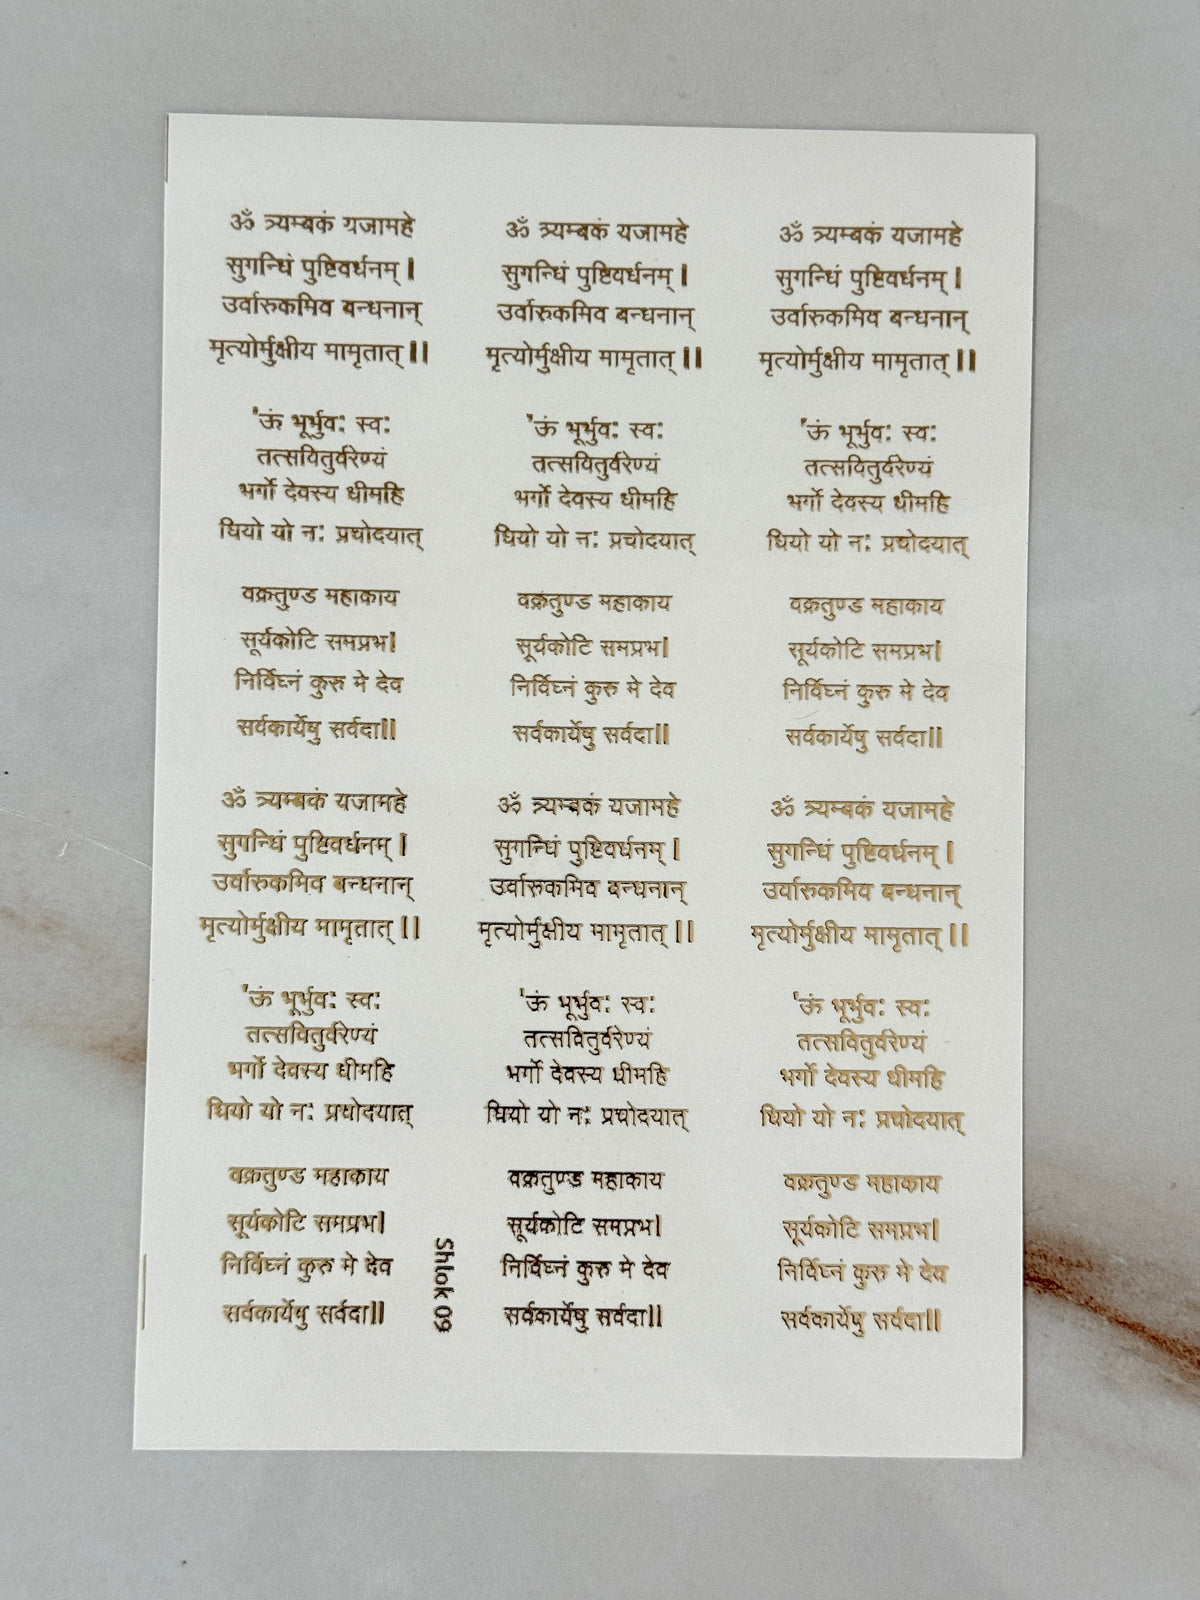 ॐ त्र्यम्बकं यजामहे
सुगन्धिं पुष्टिवर्धनम् ।
उर्वारुकमिव बन्धनान्
मृत्योर्मुक्षीय मामृतात् ।।
ॐ त्र्यम्बकं यजामहे
सुगन्धिं पुष्टिवर्धनम् ।
उर्वारुकमिव बन्धनान्
मृत्योर्मुक्षीय मामृतात् ।।
ॐ त्र्यम्बकं यजामहे
सुगन्धिं पुष्टिवर्धनम् ।
उर्वारुकमिव बन्धनान्
मृत्योर्मुक्षीय मामृतात् ।।
'ऊं भूर्भुव: स्व:
तत्सवितुर्वरेण्यं
भर्गो देवस्य धीमहि
धियो यो न: प्रचोदयात्
'ऊं भूर्भुव: स्व:
तत्सवितुर्वरेण्यं
भर्गो देवस्य धीमहि
धियो यो न: प्रचोदयात्
'ऊं भूर्भुव: स्व:
तत्सवितुर्वरेण्यं
भर्गो देवस्य धीमहि
धियो यो न: प्रचोदयात्
वक्रतुण्ड महाकाय
सूर्यकोटि समप्रभ।
निर्विघ्नं कुरु मे देव
सर्वकार्येषु सर्वदा।।
वक्रतुण्ड महाकाय
सूर्यकोटि समप्रभ।
निर्विघ्नं कुरु मे देव
सर्वकार्येषु सर्वदा।।
वक्रतुण्ड महाकाय
सूर्यकोटि समप्रभ।
निर्विघ्नं कुरु मे देव
सर्वकार्येषु सर्वदा।।
ॐ त्र्यम्बकं यजामहे
सुगन्धिं पुष्टिवर्धनम् ।
उर्वारुकमिव बन्धनान्
मृत्योर्मुक्षीय मामृतात् ।।
ॐ त्र्यम्बकं यजामहे
सुगन्धिं पुष्टिवर्धनम् ।
उर्वारुकमिव बन्धनान्
मृत्योर्मुक्षीय मामृतात् ।।
ॐ त्र्यम्बकं यजामहे
सुगन्धिं पुष्टिवर्धनम् ।
उर्वारुकमिव बन्धनान्
मृत्योर्मुक्षीय मामृतात् ।।
'ऊं भूर्भुव: स्व:
तत्सवितुर्वरेण्यं
भर्गो देवस्य धीमहि
धियो यो न: प्रचोदयात्
'ऊं भूर्भुव: स्व:
तत्सवितुर्वरेण्यं
भर्गो देवस्य धीमहि
धियो यो न: प्रचोदयात्
'ऊं भूर्भुव: स्व:
तत्सवितुर्वरेण्यं
भर्गो देवस्य धीमहि
धियो यो न: प्रचोदयात्
वक्रतुण्ड महाकाय
सूर्यकोटि समप्रभ।
निर्विघ्नं कुरु मे देव
सर्वकार्येषु सर्वदा।।
Shlok 09
वक्रतुण्ड महाकाय
सूर्यकोटि समप्रभ।
निर्विघ्नं कुरु मे देव
सर्वकार्येषु सर्वदा।।
वक्रतुण्ड महाकाय
सूर्यकोटि समप्रभ।
निर्विघ्नं कुरु मे देव
सर्वकार्येषु सर्वदा।।